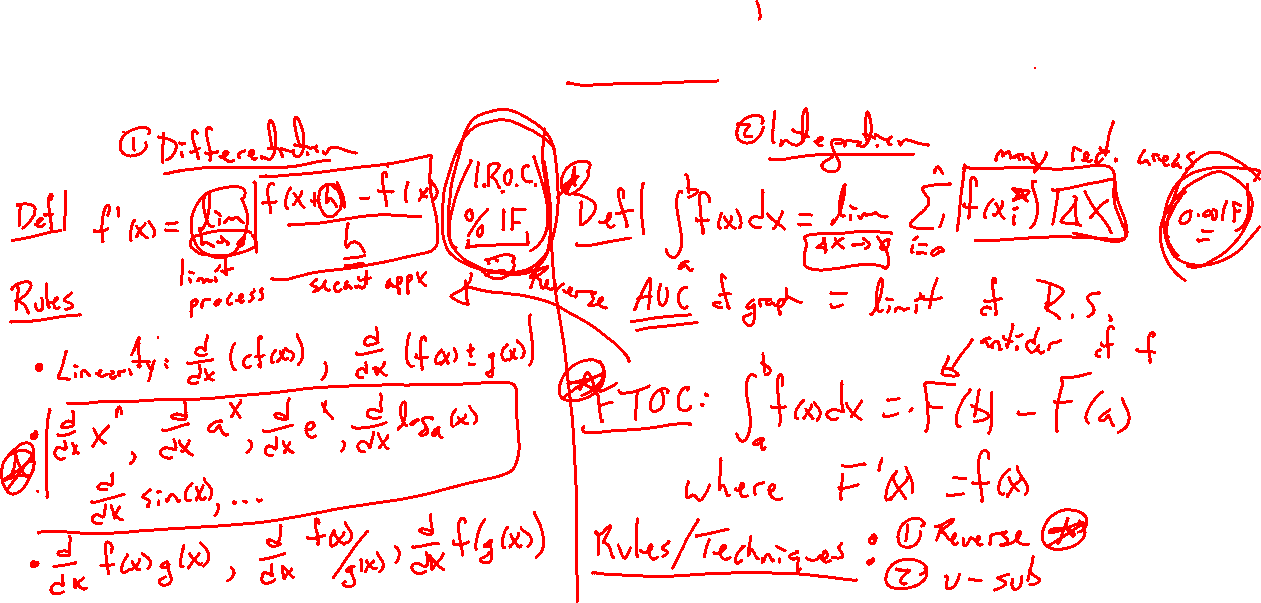 ① Differentiation
Def| f'(x) = lim h→0 f(x+h) - f(x) / h
limit process
secant appx
I.R.O.C.
% IF
Rules
• Linearity: d/dx (cf(x)), d/dx (f(x) ± g(x))
• d/dx x^n, d/dx a^x, d/dx e^x, d/dx log_a(x)
d/dx sin(x), ...
• d/dx f(x)g(x), d/dx f(x)/g(x), d/dx f(g(x))
② Integration
many rect. areas
Def| ∫_a^b f(x)dx = lim Δx→0 Σ_{i=0}^n f(x_i*) Δx
0.001F
Reverse
AUC of graph = limit of R.S.
antider of f
FTOC: ∫_a^b f(x)dx = F(b) - F(a)
where F'(x) = f(x)
Rules/Techniques: • ① Reverse
• ② u-sub